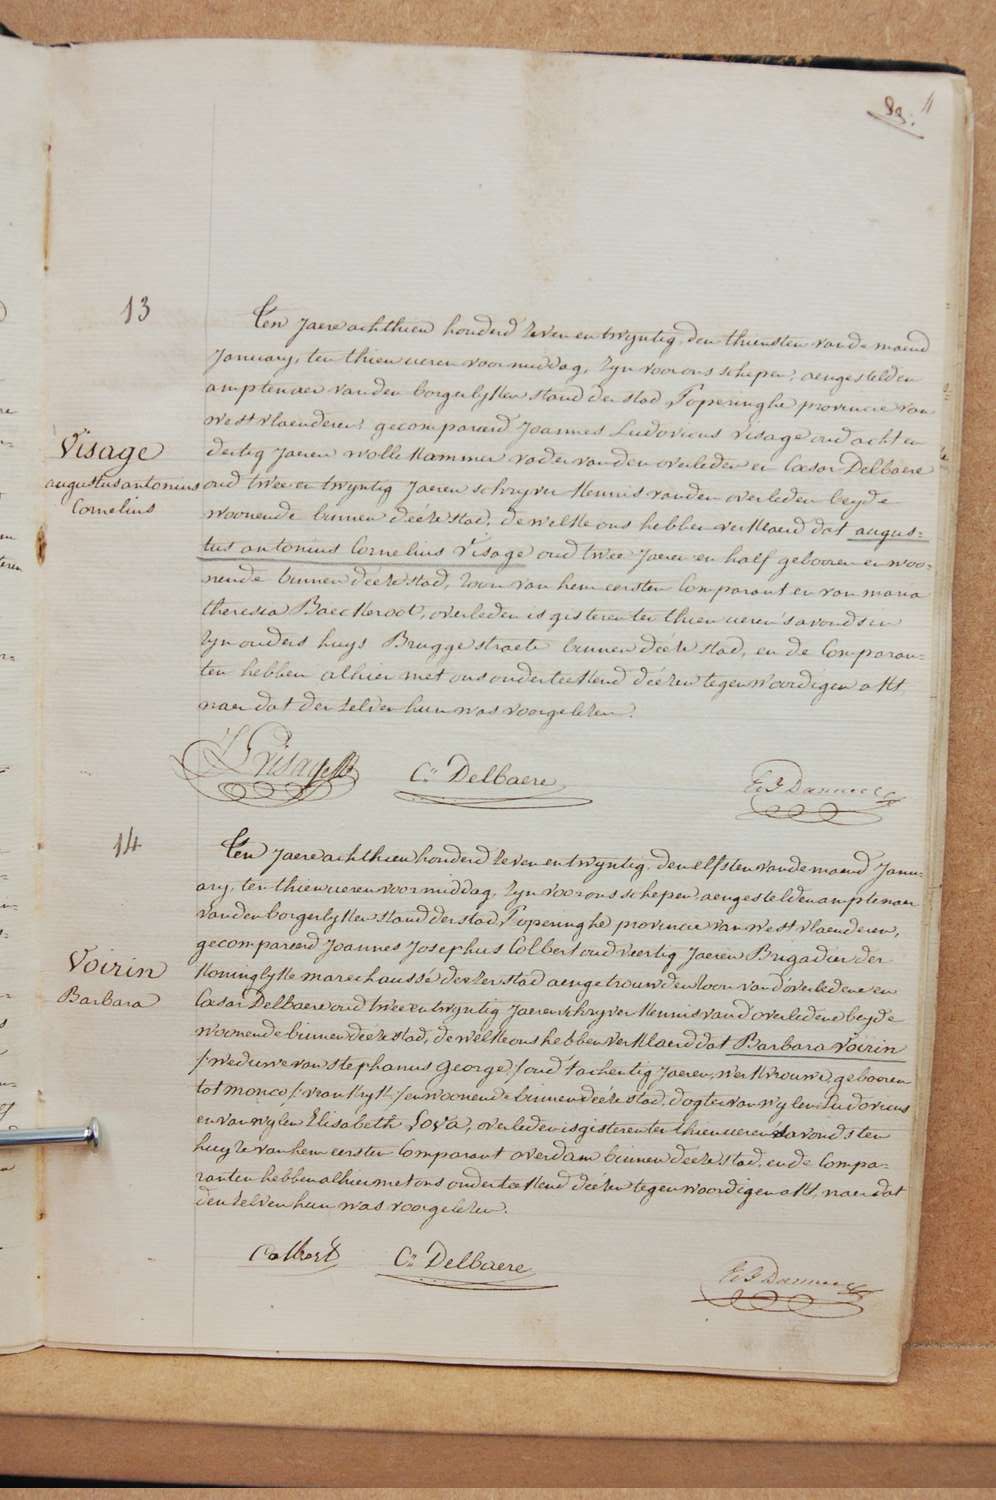 83.
13
Visage
augustus antonius
Cornelius
Ten Jaere achthien honderd zeven en twyntig, den thiensten van de maend
January, ten thien ueren voormiddag, zyn voor ons schepen, aengestelden
amptenaer van den borgerlyken stand der stad Poperinghe provincie van
westvlaenderen, gecompareerd Joannes Ludovicus Visage oud acht en
dertig Jaeren wolle kammer vader van den overleden en Cæsar Delbaere
oud twee en twyntig Jaeren schryver kennis van den overleden beyde
woonende binnen déeze stad, de welke ons hebben verklaerd dat augus=
tus antonius Cornelius Visage oud twee Jaeren en half gebooren en woo=
nende binnen déeze stad, zoon van hem eersten Comparant en van maria
theresia Baeckeroot, overleden is gisteren ten thien ueren s'avonds in
zyn ouders huys Bruggestraete binnen déeze stad, en de Comparan=
ten hebben alhier met ons onderteekend déezen tegenwoordigen akt,
naer dat den zelven hun was voorgelezen.
L Visage
Cr. Delbaere
14
Voirin
Barbara
Ten Jaere achthien honderd zeven en twyntig, den elfsten van de maend Janu=
ary, ten thien ueren voormiddag, zyn voor ons schepen, aengestelden amptenaer
van den borgerlyken stand der stad Poperinghe provincie van westvlaenderen,
gecompareerd Joannes Josephus Colbert oud veertig Jaeren Brigadier der
koninglyke marechaussé deezer stad aengetrouwden zoon van d'overledene en
Cæsar Delbaere oud twee en twyntig Jaeren schryver kennis van d'overledene beyde
woonende binnen déeze stad, de welke ons hebben verklaerd dat Barbara Voirin
/:weduwe van Stephanus George:/ oud tachentig Jaeren, werkvrouwe, gebooren
tot monco /:vrankryk:/ en woonende binnen déeze stad, dogter van wylen Ludovicus
en van wylen Elisabeth Loya, overleden is gisteren ten thien ueren s'avonds ten
huyze van hem eersten Comparant overdam binnen deeze stad, en de Compa=
ranten hebben alhier met ons onderteekend déezen tegenwoordigen akt, naer dat
den zelven hun was voorgelezen.
Colbert
Cr. Delbaere